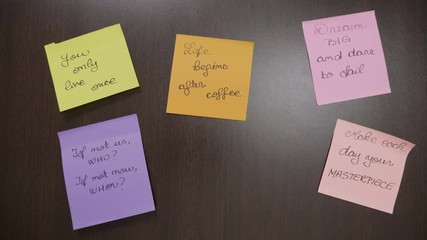 You
only
live once
Life
begins
after
coffee
Dream
BIG
and dare
to fail
If not us,
WHO?
If not now,
WHEN?
Make each
day your
MASTERPIECE